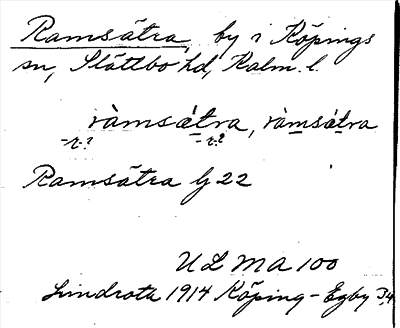 Ramsätra, by i Köpings
sn, Slättbo hd, Kalm. l.
ràmsätra, ràmsätra
-r.? -r.?
Ramsätra G 22
ULMA 100
Lindroth 1914 Köping-Egby